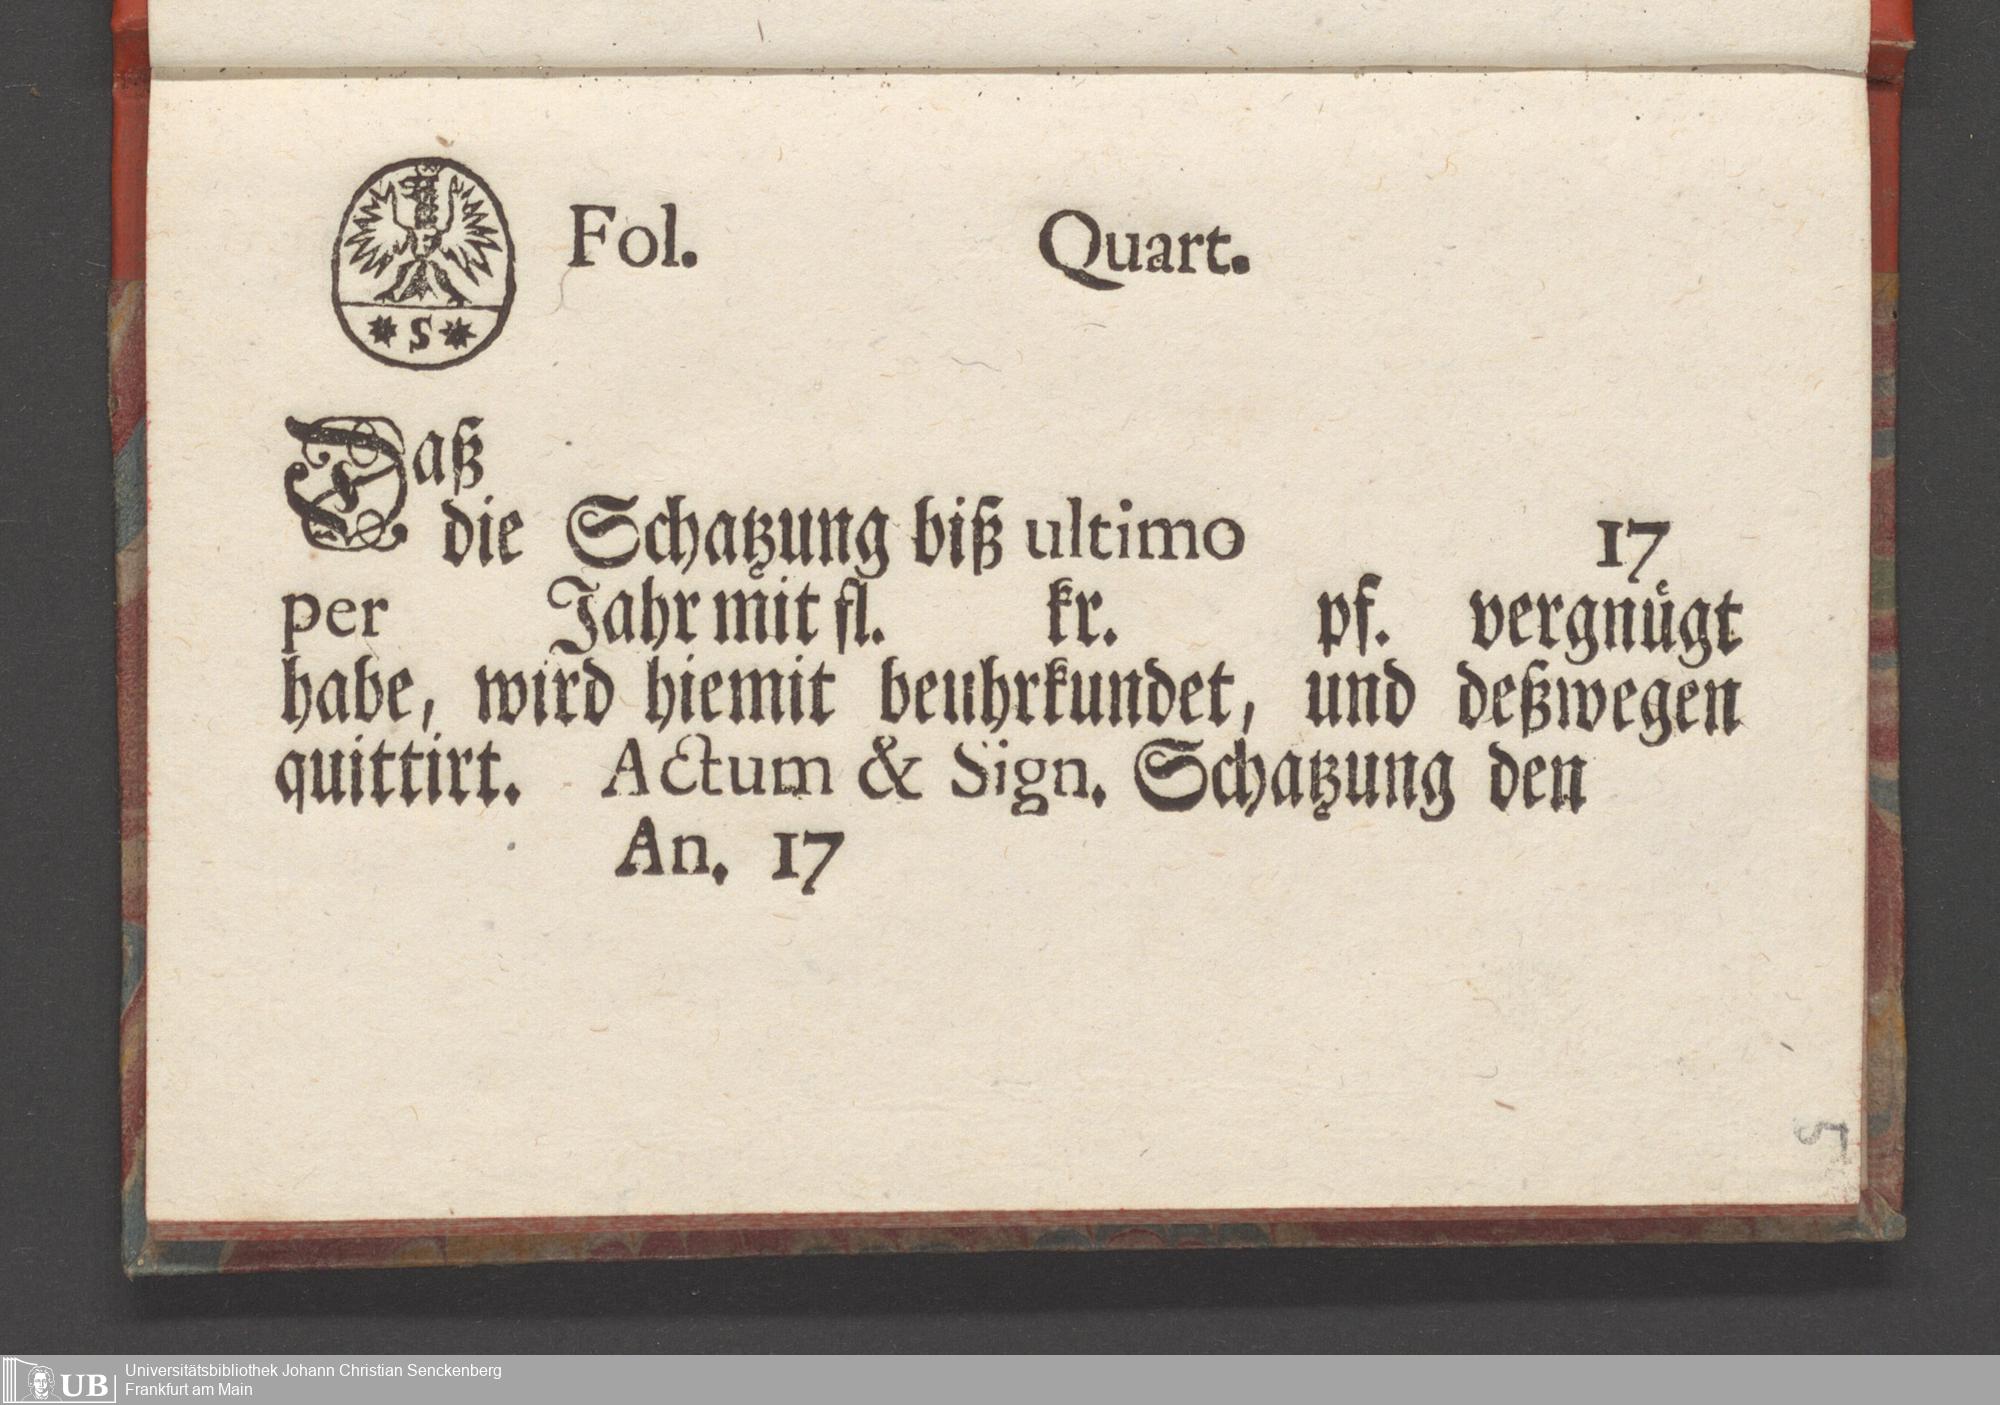 Fol. Quart.
* S *
Daß
die Schatzung biß ultimo 17
per Jahr mit fl. kr. pf. vergnügt
habe, wird hiemit beuhrkundet, und deßwegen
quittirt. Actum & Sign. Schatzung den
An. 17
5
UB Universitätsbibliothek Johann Christian Senckenberg
Frankfurt am Main